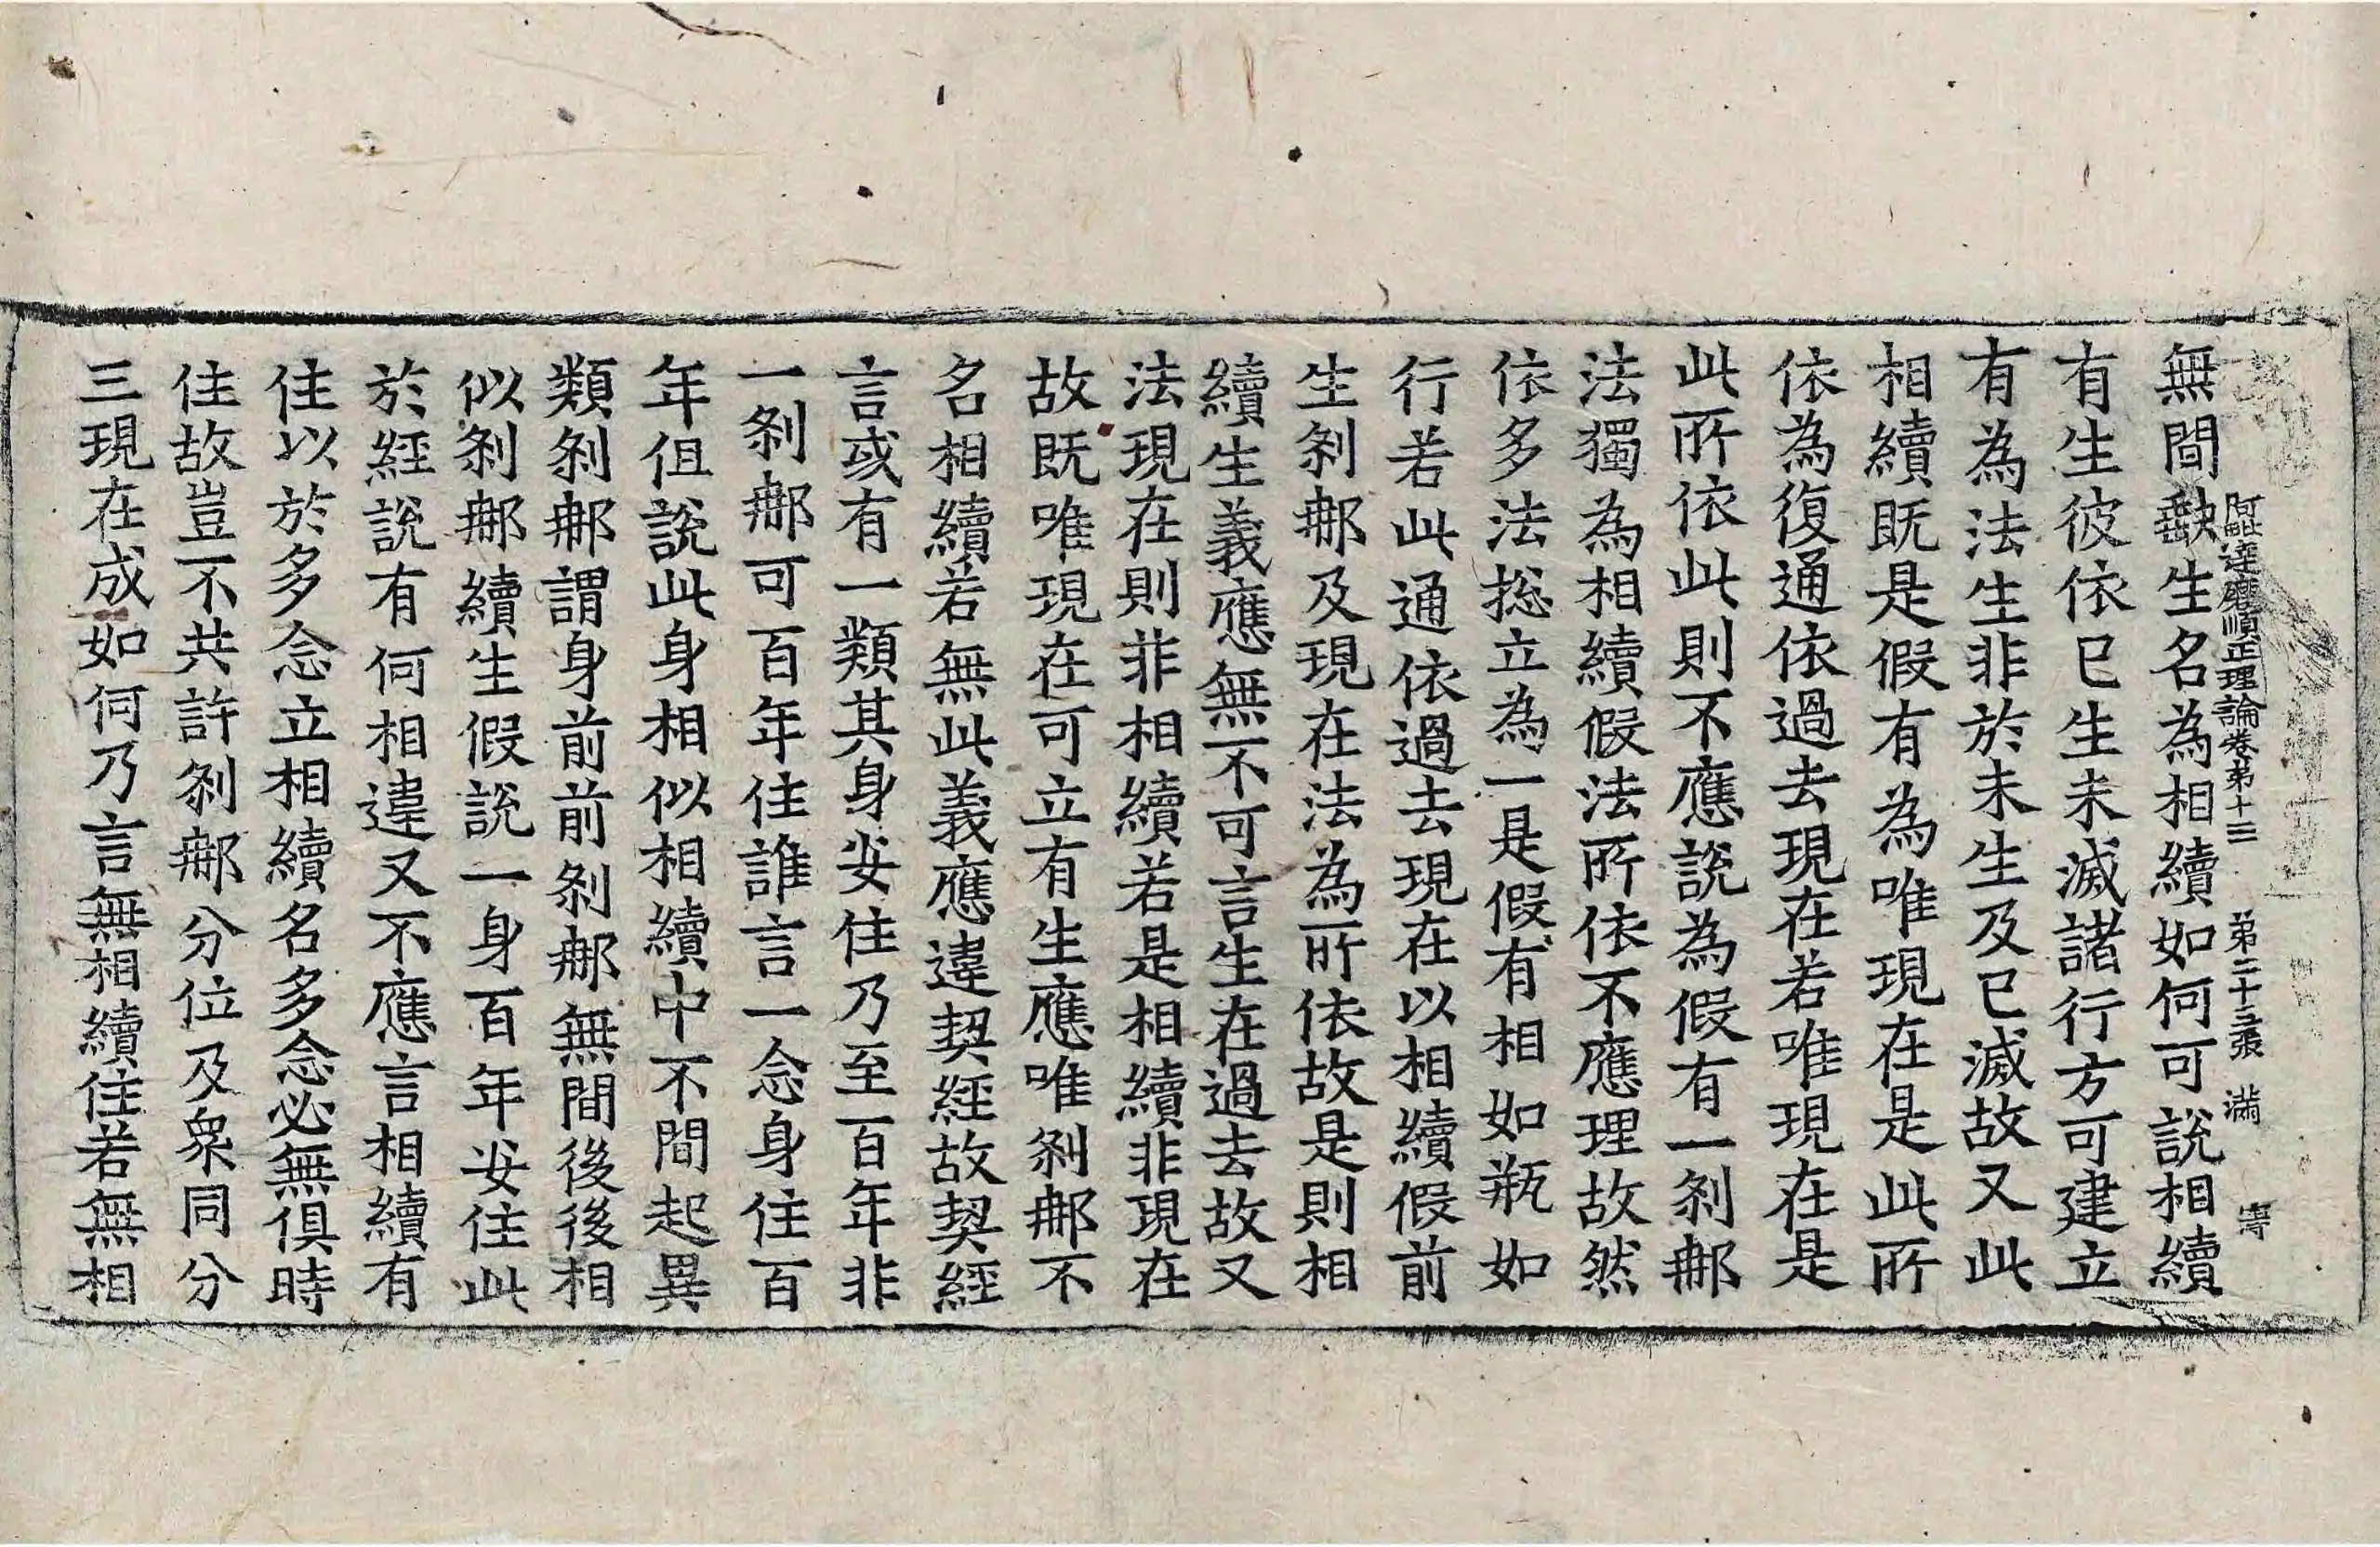 阿毗達磨順正理論卷第十三 第二十三張 滿
無間缺生名為相續如何可說相續
有生彼依已生未滅諸行方可建立
有為法生非於未生及已滅故又此
相續既是假有為唯現在是此所
依為復通依過去現在若唯現在是
此所依此則不應說為假有一剎那
法獨為相續假法所依不應理故然
依多法捴立為一是假有相如瓶如
行若此通依過去現在以相續假前
生剎那及現在法為所依故是則相
續生義應無不可言生在過去故又
法現在則非相續若是相續非現在
故既唯現在可立有生應唯剎那不
名相續若無此義應違契經故契經
言或有一類其身安住乃至百年非
一剎那可百年住誰言一念身住百
年但說此身相似相續中不間起異
類剎那謂身前前剎那無間後後相
似剎那續生假說一身百年安住此
於經說有何相違又不應言相續有
住以於多念立相續名多念必無俱時
住故豈不共許剎那分位及衆同分
三現在成如何乃言無相續住若無相